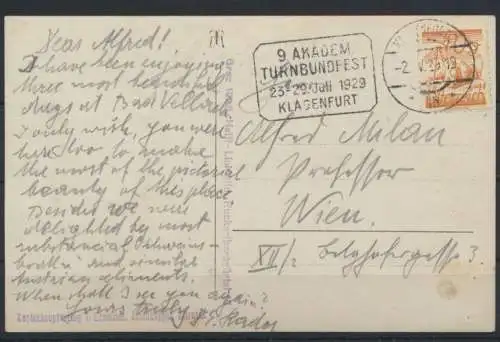 Dear Alfred!
I have been enjoying
three most beautiful
days at Bad Vellach
I only wish, you were
here too to make
the most of the pictorial
beauty of this place
Besides we were
delighted by most
substancial Schweins-
and similar
Austrian aliments.
When shall I see you again?
Yours truly
9 AKADEM.
TURNBUNDFEST
23-29 Juli 1929
KLAGENFURT
Alfred Milan
Professor
Wien.
XII/2